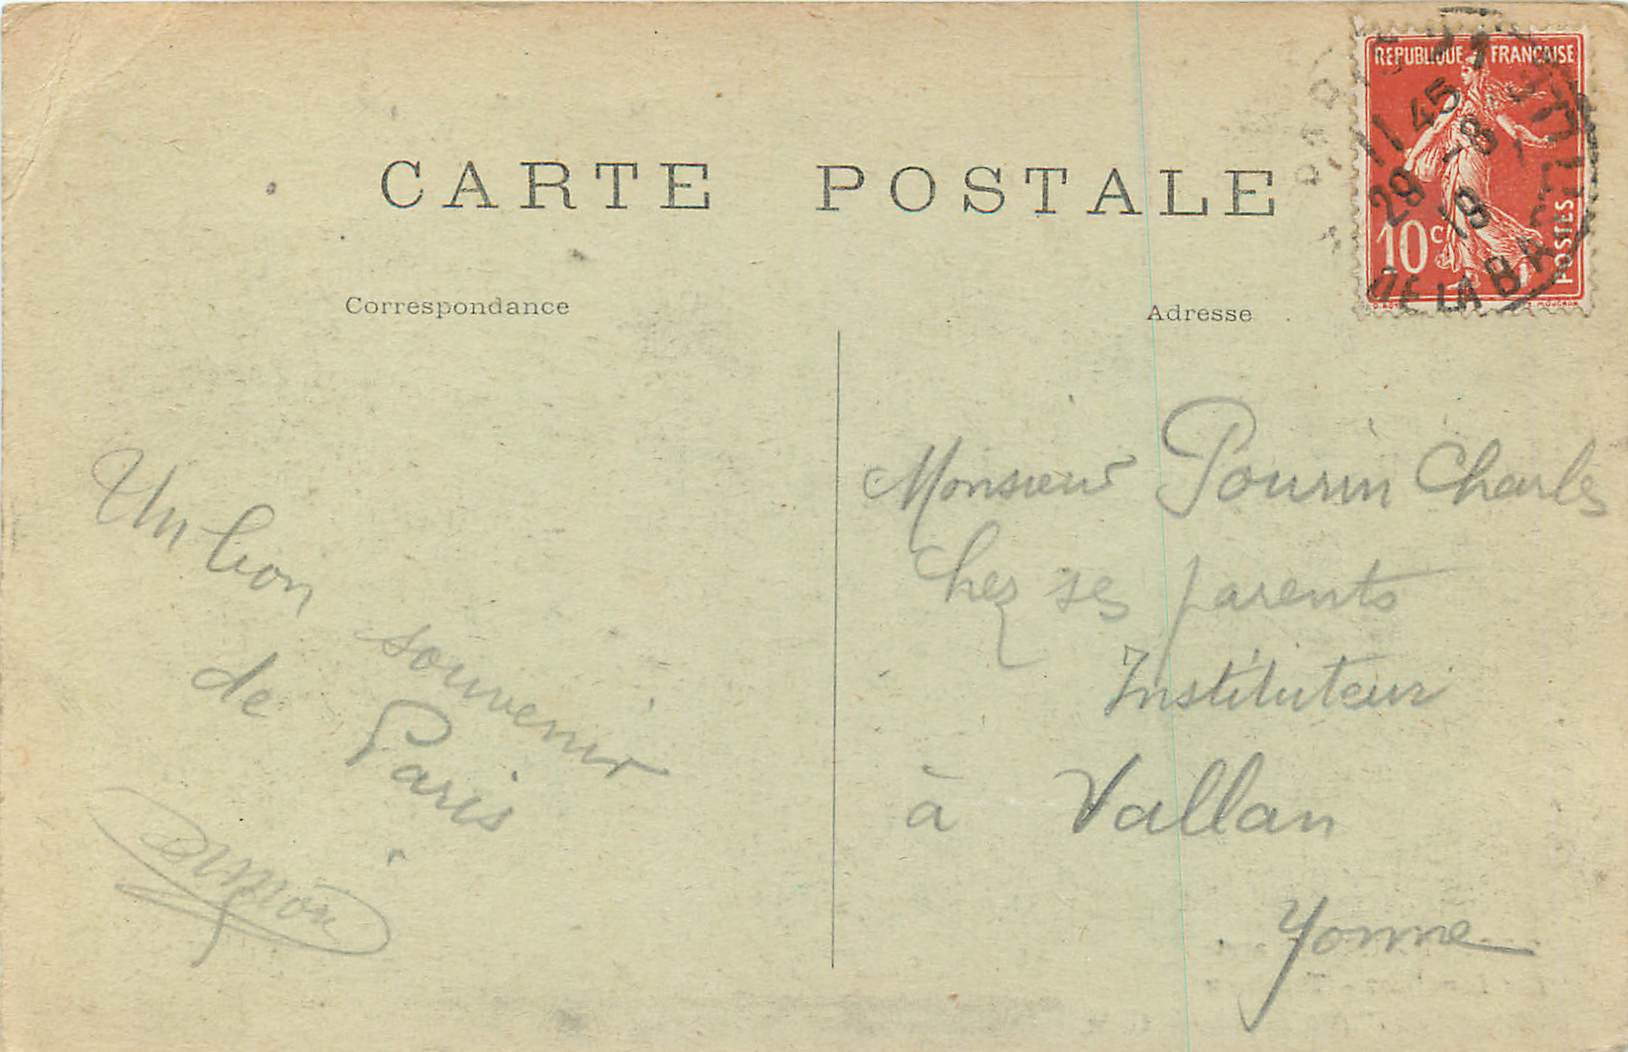 CARTE POSTALE
Correspondance
Adresse
REPUBLIQUE FRANÇAISE
10c
POSTES
11 45
29 -8
18
DE LA BASTILLE
Un bon souvenir
de Paris
Monsieur Pourin Charles
Chez ses parents
Instituteur
à Vallan
Yonne